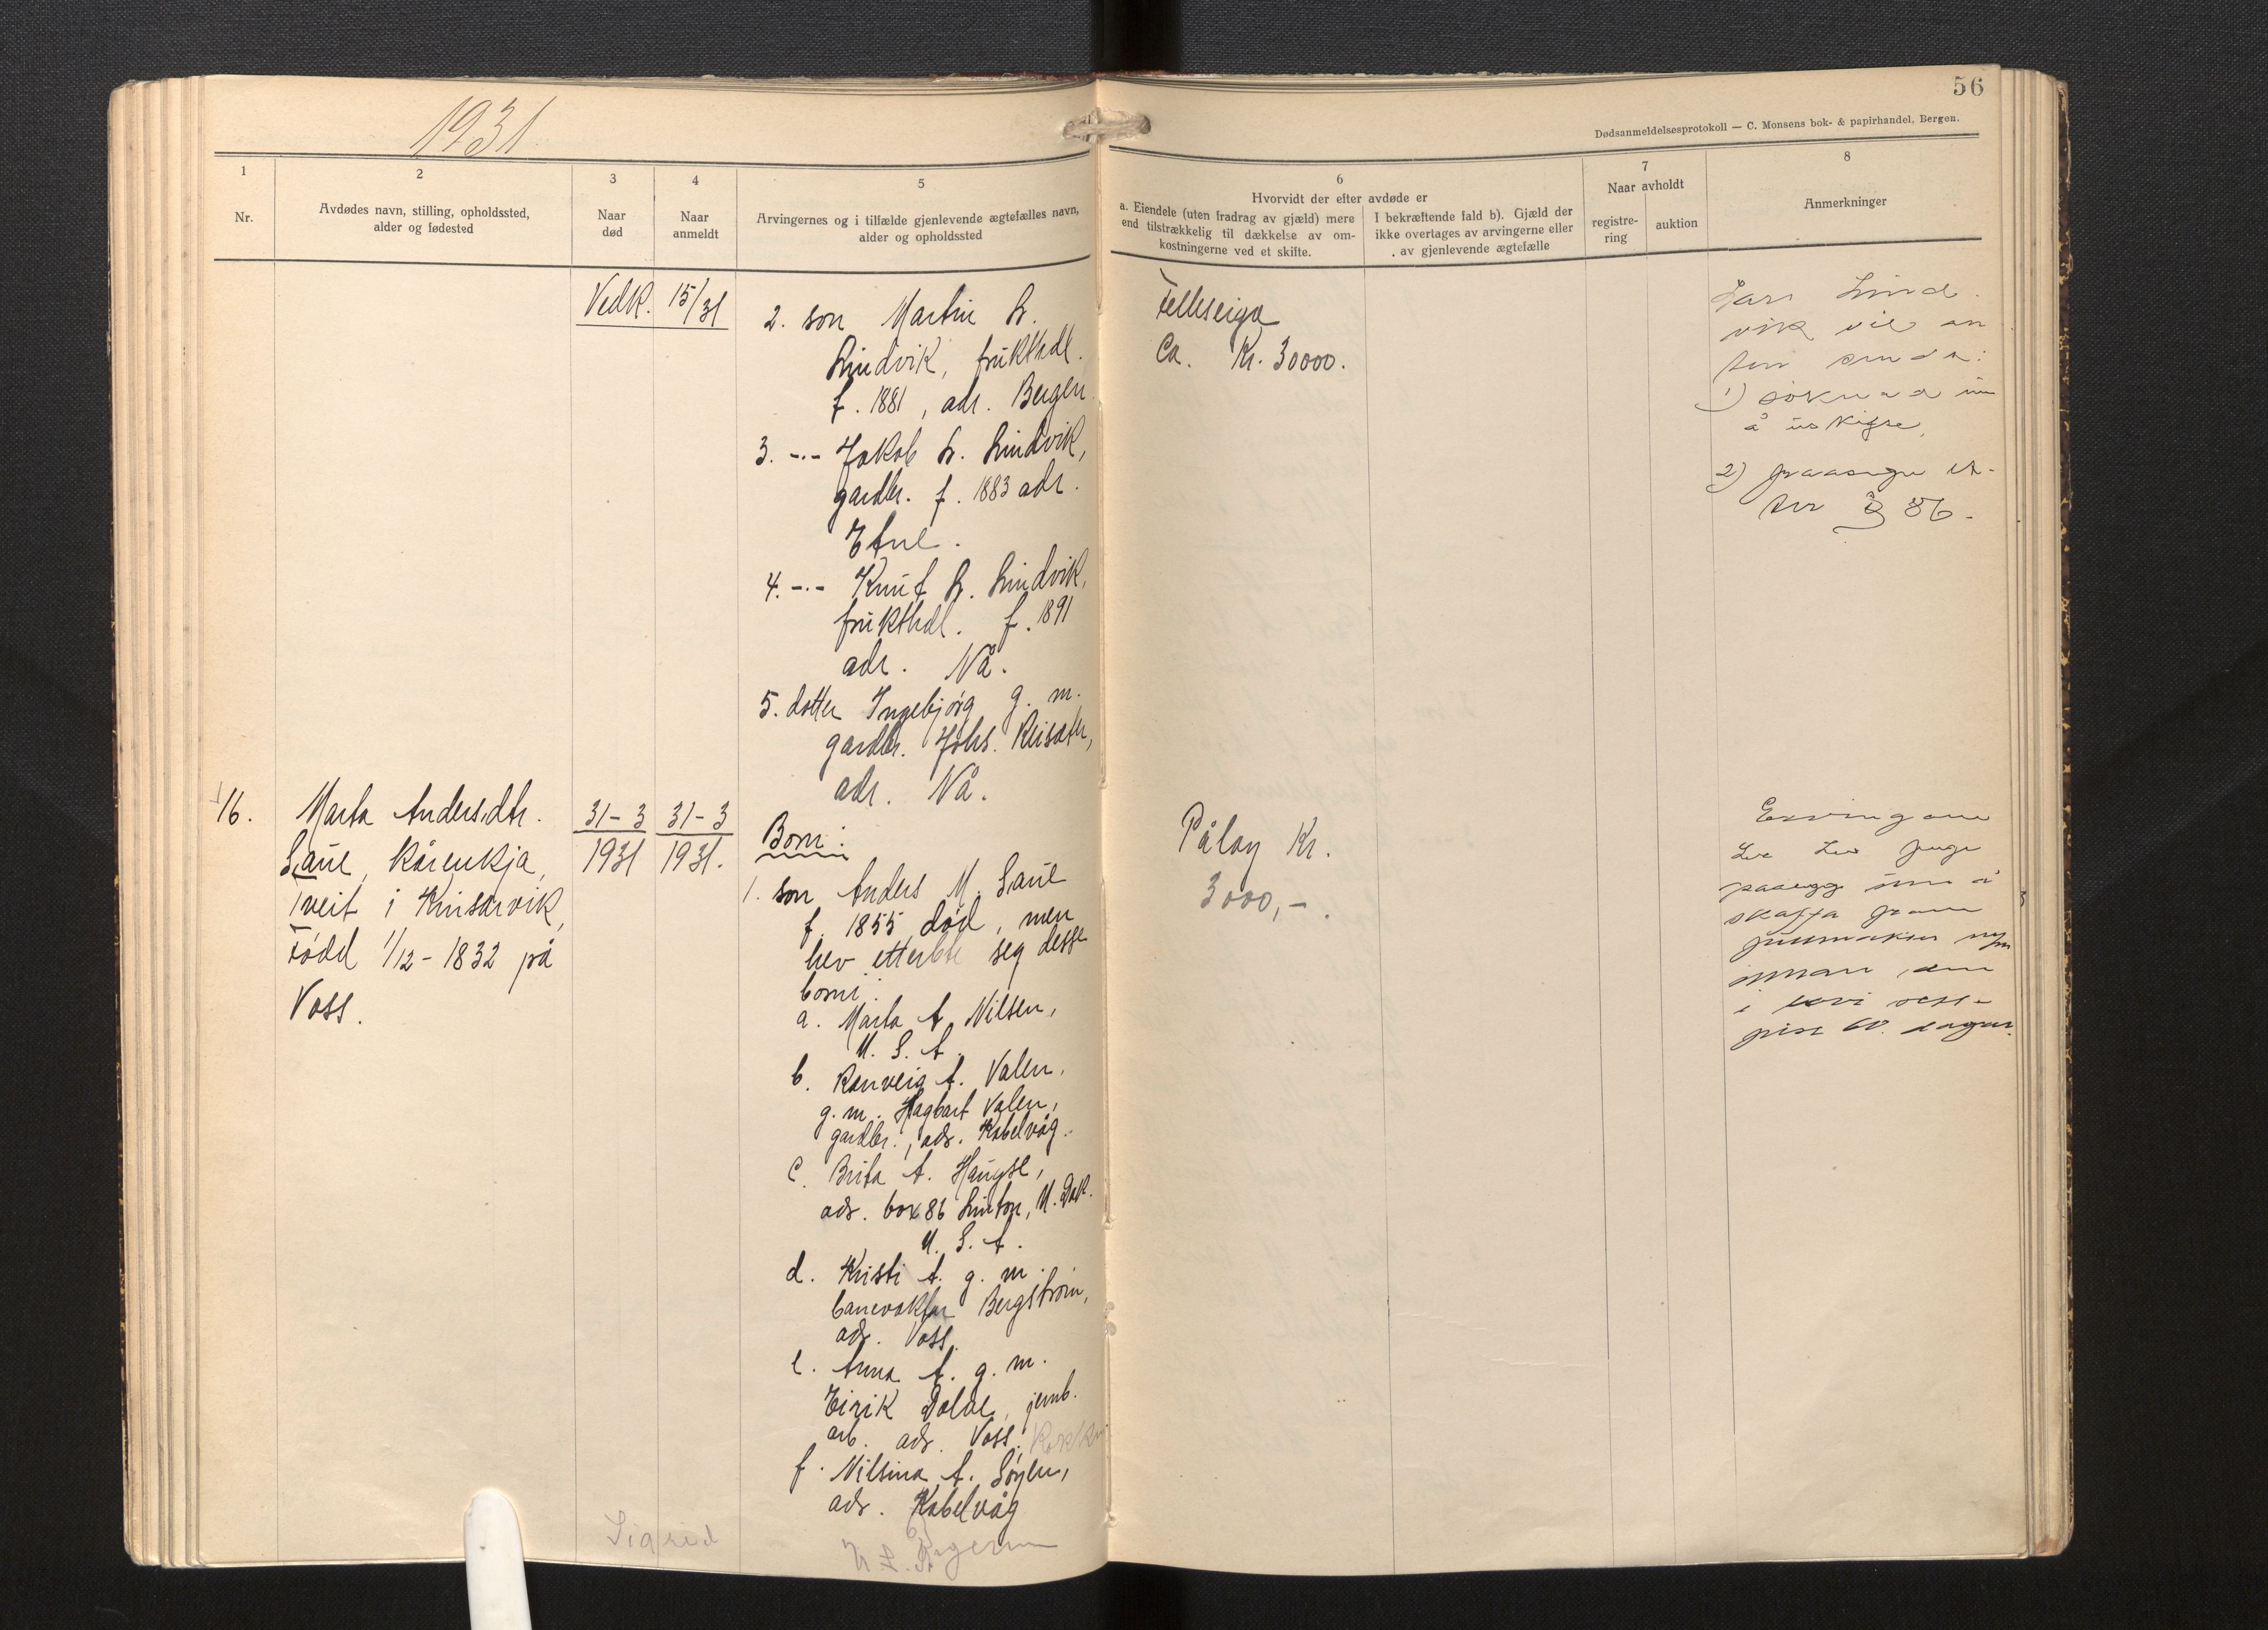 1931
56
Dødsanmeldelsesprotokoll — C. Monsens bok- & papirhandel, Bergen.
1
Nr.
2
Avdødes navn, stilling, opholdssted,
alder og fødested
3
Naar
død
4
Naar
anmeldt
5
Arvingernes og i tilfælde gjenlevende ægtefælles navn,
alder og opholdssted
6
Hvorvidt der efter avdøde er
a. Eiendele (uten fradrag av gjæld) mere
end tilstrækkelig til dækkelse av om-
kostningerne ved et skifte.
I bekræftende fald b). Gjæld der
ikke overtages av arvingerne eller
av gjenlevende ægtefælle
7
Naar avholdt
registre-
ring
auktion
8
Anmerkninger
Vedk. 15/31
2. son Martin L.
Lindvik, frukthdl.
f. 1881, adr. Bergen.
3. -"- Jakob L. Lindvik,
gardbr. f. 1883 adr.
Etne.
4. -"- Knut L. Lindvik,
frukthdl. f. 1891
adr. Nå.
5. dotter Ingebjørg g. m.
gardbr. Johs. Reisæter,
adr. Nå.
Felleseiga
Ca. Kr. 30000.
Lars Lind-
vik vil
1) søknad um
å uskifte,
2)
§ 86.
16.
Marta Andersdtr.
Saue, kårenkja,
Tveit i Kinsarvik,
Fødd 1/12-1832 på
Voss.
31-3
1931
31-3
1931.
Born:
1. son Anders M. Saue
f. 1855, død, men
hev etterlete seg desse
borni:
a. Marta A. Nilsen,
U. S. A.
b. Ranveig A. Valen,
g. m. Hagbart Valen,
gardbr., adr. Kabelvåg.
c. Brita A. Haugse,
adr. box 86 Linton, N. Dak.
U. S. A.
d. Kristi A. g. m.
banevakter Bergstrøm,
adr. Voss.
e. Anna A. g. m.
Eirik Dolve, jernb.
arb. adr. Voss.
f. Nilsina A. Søyler,
adr. Kabelvåg
Sigrid
Pålag Kr.
3000,-.
Ervingane
paalegg um å
skaffa fram
innan
i
60 dagar.